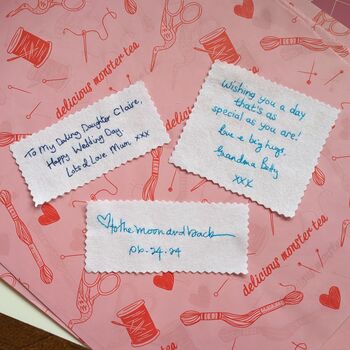 delicious monster tea
To My Darling Daughter Claire,
Happy Wedding Day.
Lots of Love Mum xxx
Wishing you a day
that's as
special as you are!
Love & big hugs,
Grandma Betty
xxx
♡ to the moon and back
06.24.24
delicious monster tea